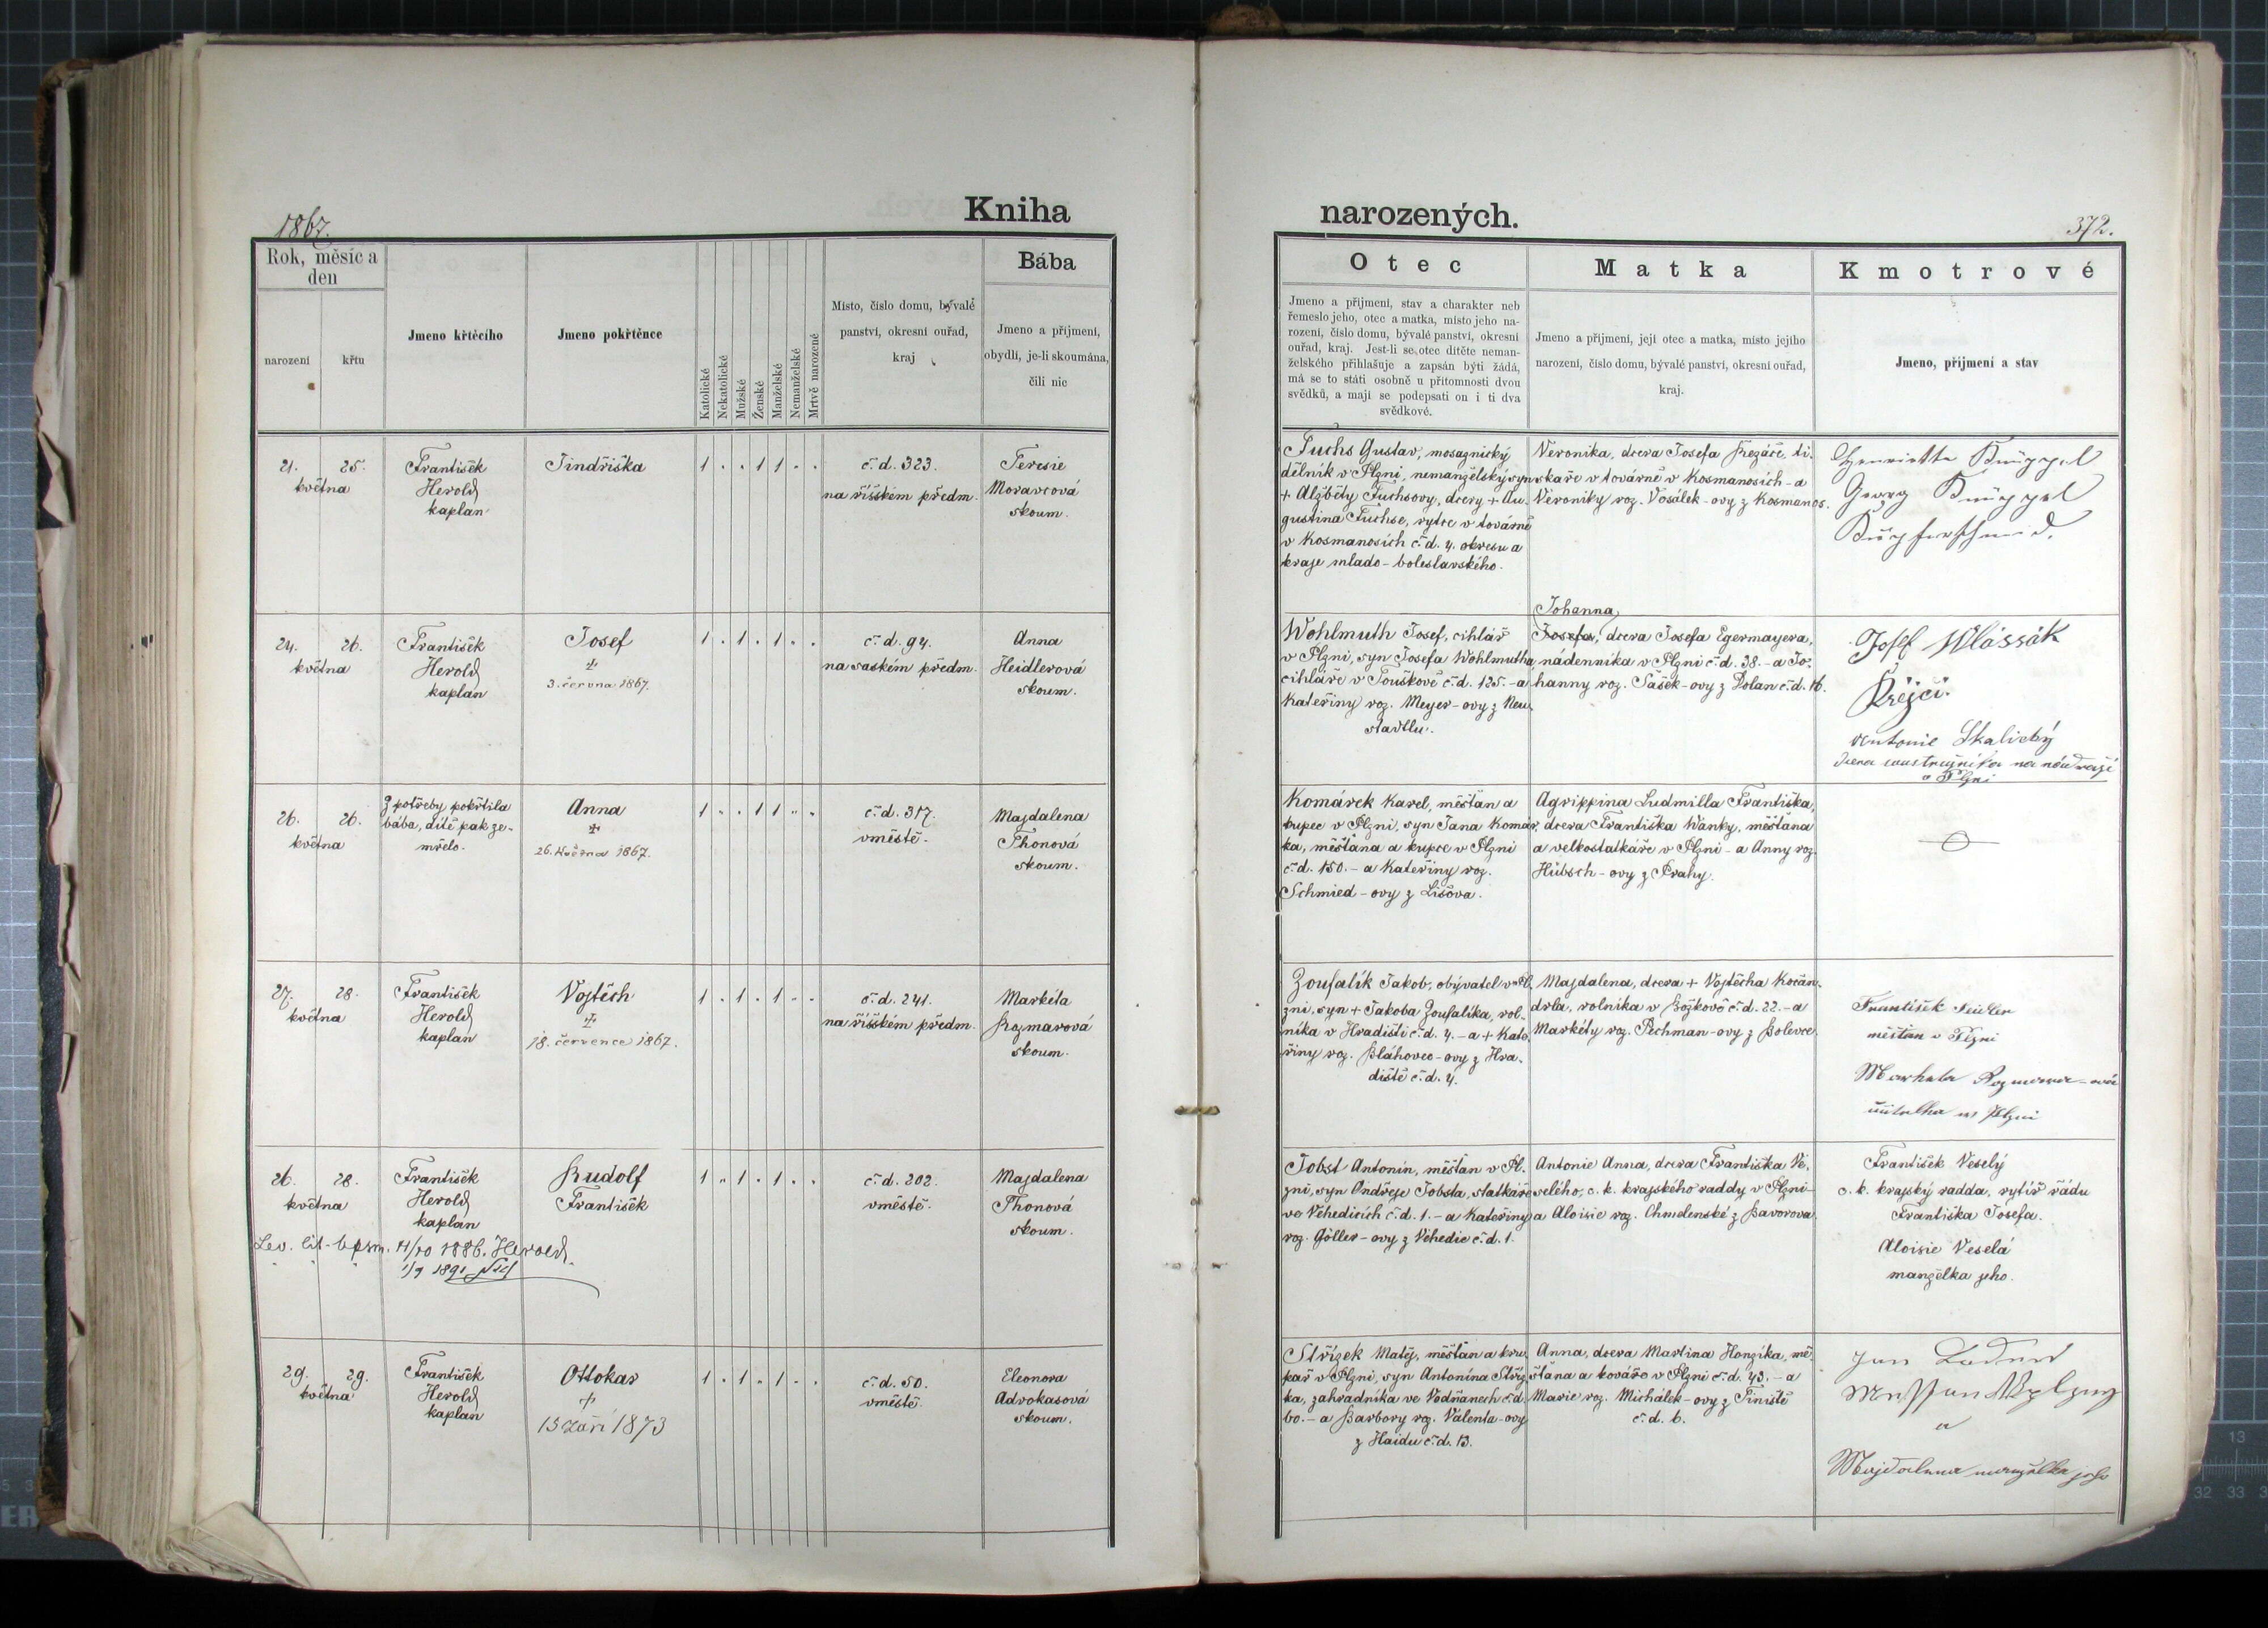 1867.
Kniha
Rok, měsíc a
den
narození
křtu
Jmeno křtěcího
Jmeno pokřtěnce
Katolické
Nekatolické
Mužské
Ženské
Manželské
Nemanželské
Mrtvě narozené
Místo, číslo domu, bývalé
panství, okresní ouřad,
kraj
Bába
Jmeno a příjmení,
obydlí, je-li skoumána,
čili nic
21. 25.
května
František
Herold
kaplan
Jindřiška
1 . . 1 1 . .
č. d. 323.
na říšském předm.
Teresie
Moravcová
skoum.
24. 26.
května
František
Herold
kaplan
Josef
+
3. června 1867.
1 . 1 . 1 . .
č. d. 94.
na saském předm.
Anna
Heidlerová
skoum.
26. 26.
května
Z potřeby pokřtila
bába, dítě pak ze-
mřelo.
Anna
+
26. května 1867.
1 . . 1 1 . .
č. d. 317.
v městě.
Magdalena
Thonová
skoum.
27. 28.
května
František
Herold
kaplan
Vojtěch
+
18. července 1867.
1 . 1 . 1 . .
č. d. 241.
na říšském předm.
Markéta
Rozmarová
skoum.
26. 28.
května
František
Herold
kaplan
Rudolf
František
1 . 1 . 1 . .
č. d. 202.
v městě.
Magdalena
Thonová
skoum.
Lev. lit. bpsm. 4/10 1886. Herold
1/9 1891
29. 29.
května
František
Herold
kaplan
Ottokar
+
15 září 1873
1 . 1 . 1 . .
č. d. 50.
v městě.
Eleonora
Advokasová
skoum.
narozených.
372.
Otec
Jmeno a příjmení, stav a charakter neb
řemeslo jeho, otec a matka, místo jeho na-
rození, číslo domu, bývalé panství, okresní
ouřad, kraj. Jest-li se otec dítěte neman-
želského přihlašuje a zapsán býti žádá,
má se to státi osobně u přítomnosti dvou
svědků, a mají se podepsati on i ti dva
svědkové.
Matka
Jmeno a příjmení, její otec a matka, místo jejího
narození, číslo domu, bývalé panství, okresní ouřad,
kraj.
Kmotrové
Jmeno, příjmení a stav
Fuchs Gustav, mosaznický
dělník v Plzni, nemanželský syn
+ Alžběty Fuchsovy, dcery + Au-
gustina Fuchse, rytce v továrně
v Kosmanosích č. d. 4. okresu a
kraje mlado-boleslavského.
Veronika, dcera Josefa Řezáče, ti-
skaře v továrně v Kosmanosích - a
Veroniky roz. Vosálek-ovy z Kosmanos.
Henriette Küppel
Georg Küppel
Kupferschmid.
Wohlmuth Josef, cihlář
v Plzni, syn Josefa Wohlmutha,
cihláře v Touškově č. d. 125. - a
Kateřiny roz. Meyer-ovy z Neu-
stadtlu.
Johanna
Josefa, dcera Josefa Egermayera,
nádenníka v Plzni č. d. 38. - a Jo-
hanny roz. Sašek-ovy z Dolan č. d. 16.
Josef Wlássák
Krejčí.
Antonie Skalický
dcera konstrujníka na nádraží
v Plzni
Komárek Karel, měšťan a
kupec v Plzni, syn Jana Komár-
ka, měšťana a kupce v Plzni
č. d. 150. - a Kateřiny roz.
Schmied-ovy z Lišova.
Agrippina Ludmilla Františka,
dcera Františka Wanky, měšťana
a velkostatkáře v Plzni - a Anny roz.
Hübsch-ovy z Prahy.
Zoufalík Jakob, obývatel v Pl-
zni, syn + Jakoba Zoufalíka, rol-
níka v Hradišti č. d. 4. - a + Kate-
řiny roz. Bláhovec-ovy z Hra-
diště č. d. 4.
Magdalena, dcera + Vojtěcha Kočan-
drla, rolníka v Božkově č. d. 22. - a
Markéty roz. Pechman-ovy z Bolevce.
František Seidler
měšťan v Plzni
Marketa Rozmara-ová
w Plzni
Jobst Antonín, měšťan v Pl-
zni, syn Ondřeje Jobsta, statkáře
ve Vehedicích č. d. 1. - a Kateřiny
roz. Göller-ovy z Vehedic č. d. 1.
Antonie Anna, dcera Františka Ve-
selého, c. k. krajského raddy v Plzni -
a Aloisie roz. Chmelenské z Bavorova.
František Veselý
c. k. krajský radda, rytíř řádu
Františka Josefa.
Aloisie Veselá
manželka jeho.
Střízek Matěj, měšťan a kru-
pař v Plzni, syn Antonína Stříz-
ka, zahradníka ve Vodňanech č. d.
60. - a Barbory roz. Valenta-ovy
z Haidu č. d. 13.
Anna, dcera Martina Honzíka, mě-
šťana a kováře v Plzni č. d. 43. - a
Marie roz. Michálek-ovy z Tiniště
č. d. 6.
Jan
a
Magdalena manželka jeho